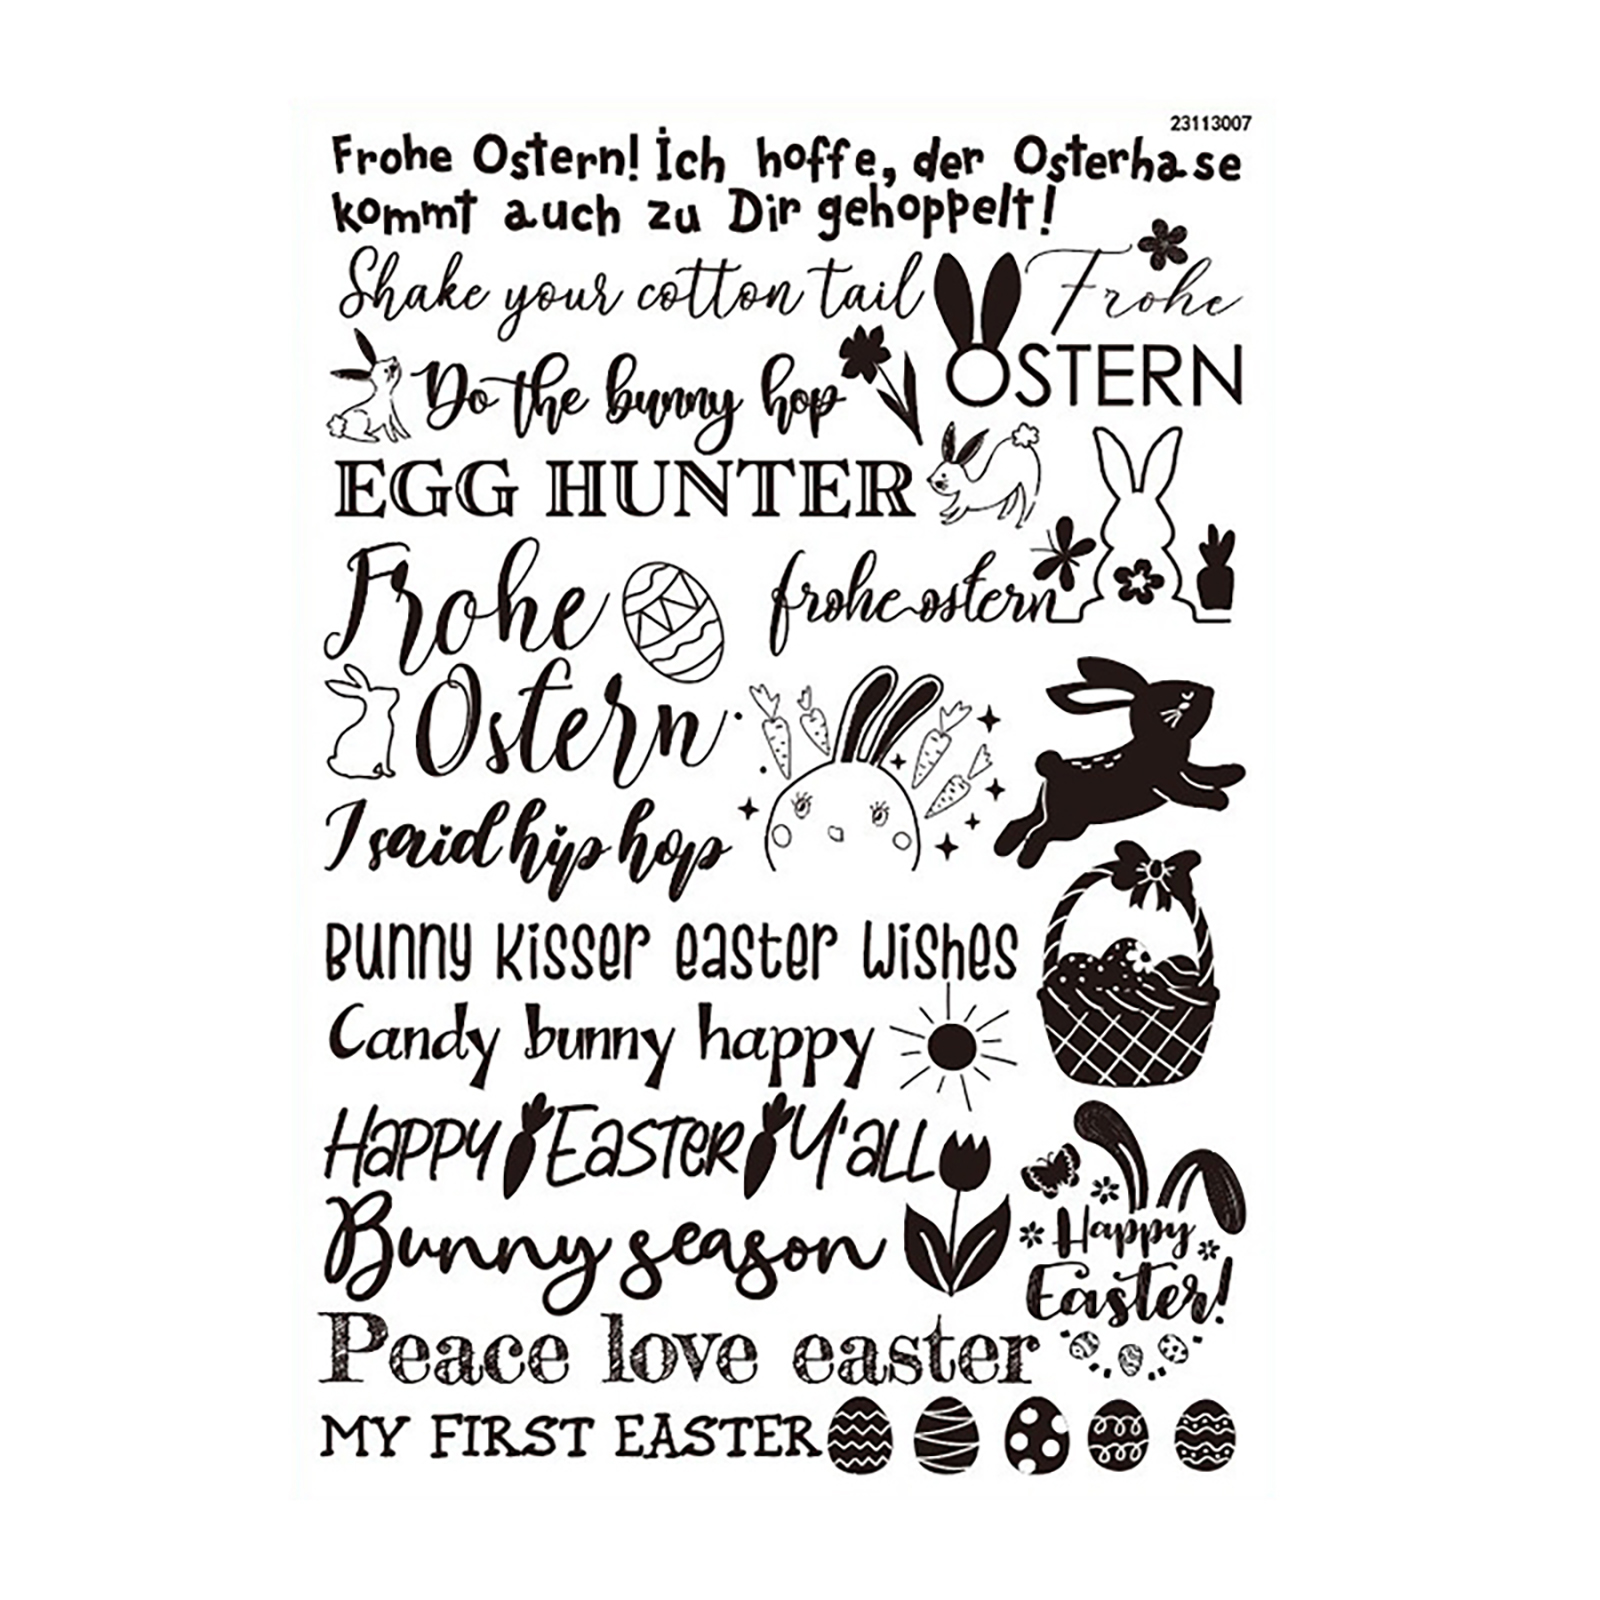 23113007
Frohe Ostern! İch hoffe, der Osterhase
kommt auch zu Dir gehoppelt!
Shake your cotton tail
Frohe
OSTERN
Do the bunny hop
EGG HUNTER
Frohe
Ostern
frohe ostern
I said hip hop
Bunny kisser easter wishes
Candy bunny happy
Happy Easter Y'all
Bunny season
Happy
Easter!
Peace love easter
MY FIRST EASTER